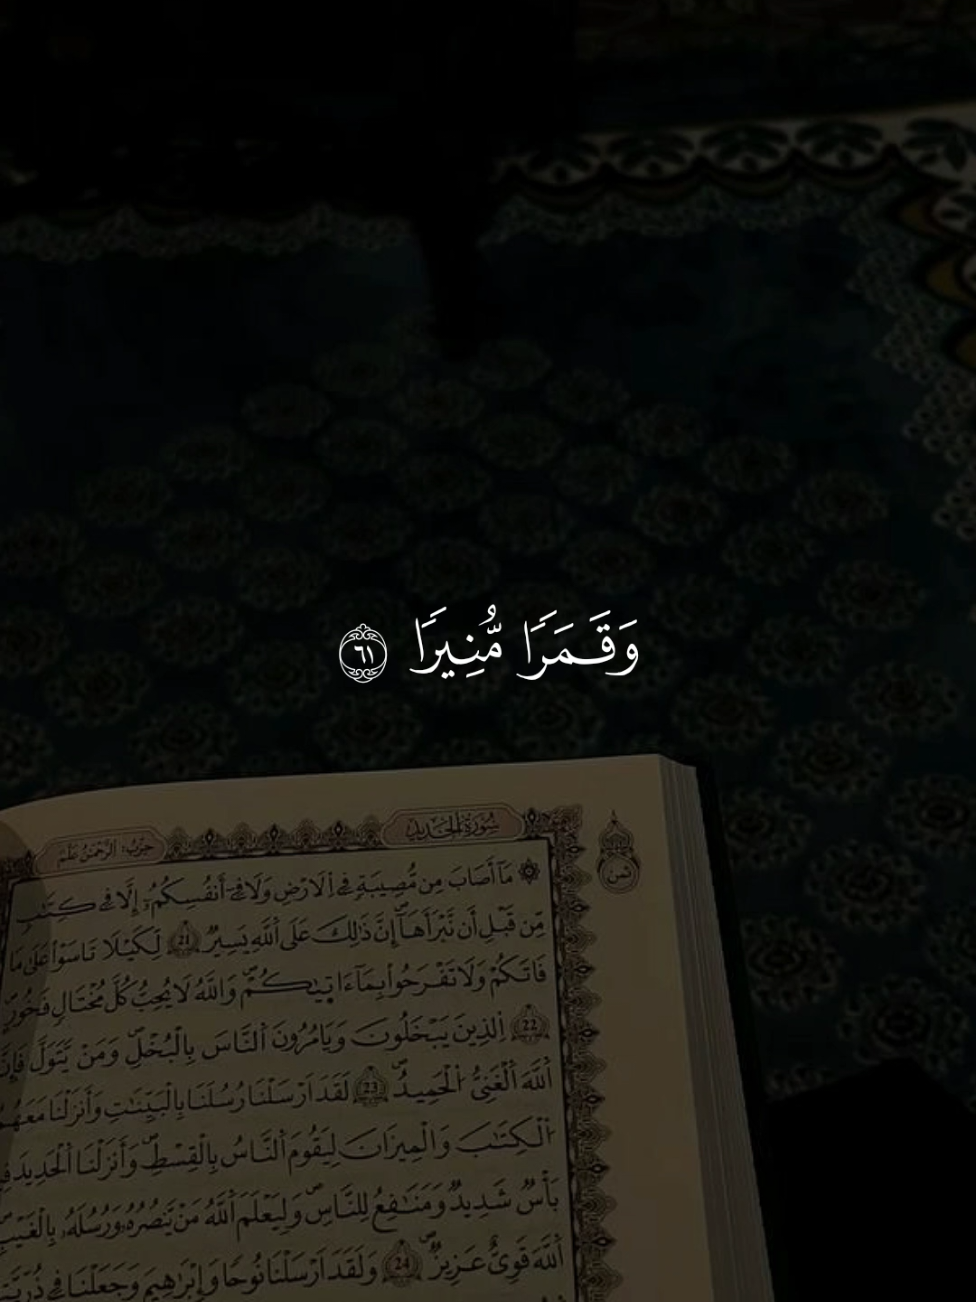 وَقَمَرًا مُّنِيرًا ٦١
سُورَةُ الْحَدِيدِ
حِزْبُ: الرَّحْمَنُ عَلَّمَ
ثمن
۞ مَآ أَصَابَ مِن مُّصِيبَةٍ فِے اِ۬لَارْضِ وَلَا فِےٓ أَنفُسِكُمُۥٓ إِلَّا فِے كِتَٰبٍ
مِّن قَبْلِ أَن نَّبْرَأَهَآ إِنَّ ذَٰلِكَ عَلَى اَ۬للَّهِ يَسِيرٌ 21 لِّكَيْلَا تَاسَوْاْ عَلَىٰ مَا
فَاتَكُمْ وَلَا تَفْرَحُواْ بِمَآ ءَات۪يٰكُمْ وَاللَّهُ لَا يُحِبُّ كُلَّ مُخْتَالٍ فَخُورٍ
22 اِ۬لذِينَ يَبْخَلُونَ وَيَامُرُونَ اَ۬لنَّاسَ بِالْبُخْلِ وَمَنْ يَّتَوَلَّ فَإِنَّ
اَ۬للَّهَ اَ۬لْغَنِيُّ اُ۬لْحَمِيدُ 23 لَقَدَ اَرْسَلْنَا رُسُلَنَا بِالْبَيِّنَٰتِ وَأَنزَلْنَا مَعَهُمُ
اُ۬لْكِتَٰبَ وَالْمِيزَانَ لِيَقُومَ اَ۬لنَّاسُ بِالْقِسْطِ وَأَنزَلْنَا اَ۬لْحَدِيدَ فِيهِ
بَأْسٌ شَدِيدٌ وَمَنَٰفِعُ لِلنَّاسِ وَلِيَعْلَمَ اَ۬للَّهُ مَنْ يَّنصُرُهُۥ وَرُسُلَهُۥ بِالْغَيْبِ
اَ۬للَّهَ قَوِيٌّ عَزِيزٌ 24 وَلَقَدَ اَرْسَلْنَا نُوحًا وَإِبْرَٰهِيمَ وَجَعَلْنَا فِے